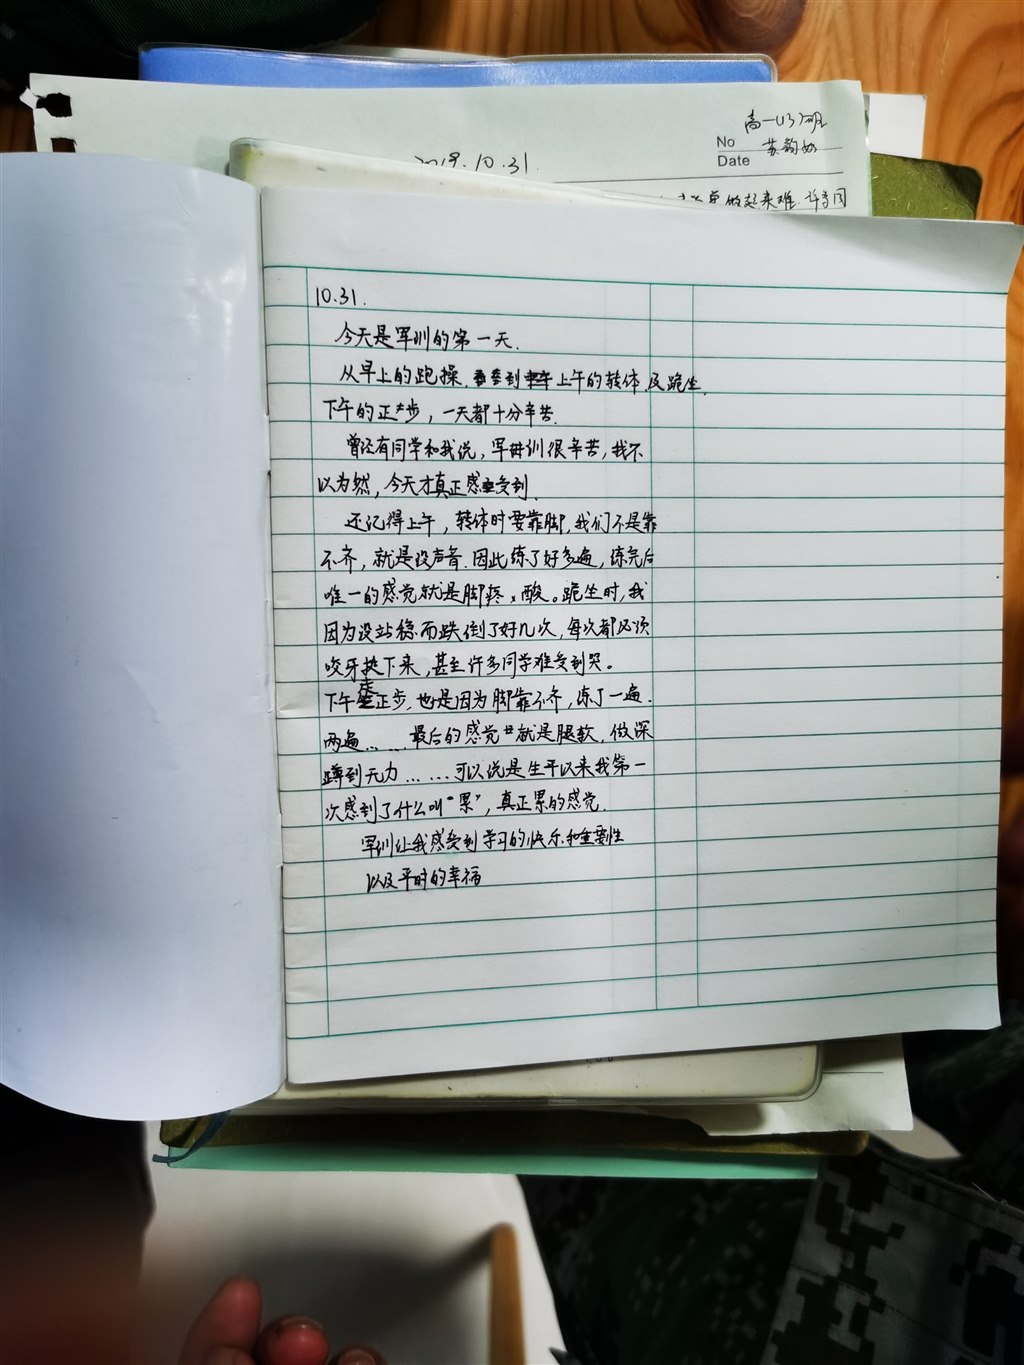 高一(13)班
No 苏韵如
Date
2019.10.31.
做起来难.许多同
10.31.
今天是军训的第一天.
从早上的跑操,到上午的转体,及跪坐
下午的正步，一天都十分辛苦.
曾经有同学和我说，军训很辛苦，我不
以为然，今天才真正感受到.
还记得上午，转体时要靠脚，我们不是靠
不齐，就是没声音.因此练了好多遍，练完后
唯一的感觉就是脚疼,酸。跪坐时,我
因为没站稳而跌倒了好几次，每次都必须
咬牙挨下来，甚至许多同学难受到哭。
下午走正步，也是因为脚靠不齐，练了一遍.
两遍……最后的感觉就是腿软，做深
蹲到无力……可以说是生平以来我第一
次感到了什么叫“累”，真正累的感觉.
军训让我感受到学习的快乐和重要性
以及平时的幸福